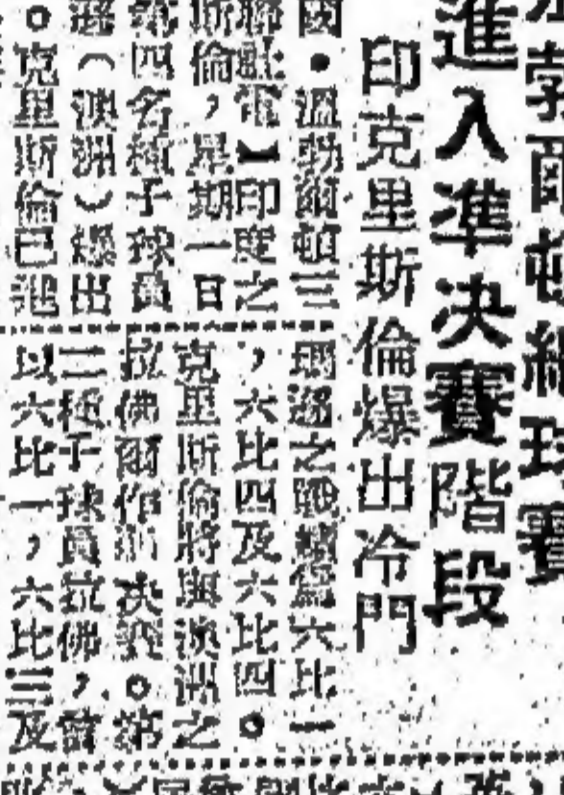 勃爾頓網球賽
進入準決賽階段
印克里斯倫爆出冷門
國・溫勃爾頓三
聯社電】印度之
斯倫，星期一日
第四名種子球員
遜（澳洲）爆出
。克里斯倫已把
瑪遜之戰績為六比一
，六比四及六比四。
克里斯倫將與澳洲之
拉佛爾作準決賽。第
二種子球員拉佛，曾
以六比一，六比三及